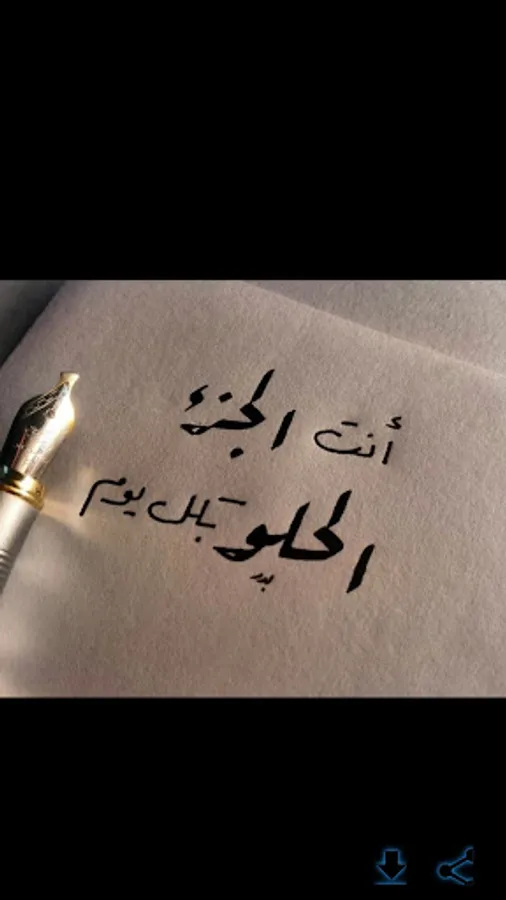 أنت الجزء
الحلو بكل يوم
بدر